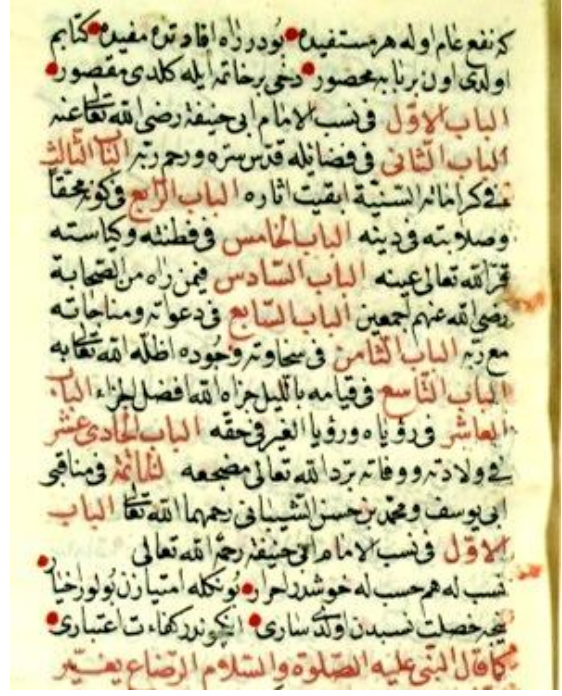 كه نفع عام اوله هر مستفيده بودر زاه افادتده مفيده كتابم
اولدى اون بر بابه محصور دخى بر خاتمه ايله كلدى مقصور
الباب الاول فى نسب الامام ابى حنيفة رضى الله تعا عنه
الباب الثانى فى فضائله قدس سره ورحم ربه الباب الثالث
فى كراماته السنية ابقيت اثاره الباب الرابع فى كونه محقا
وصلابته فى دينه الباب الخامس فى فطنته وكياسته
قر الله تعالى عينه الباب السادس فيمن راه من الصحابة
رضى الله عنهم اجمعين الباب السابع فى دعواته ومناجاته
مع ربه الباب الثامن فى سخاوته وجوده اظله الله تعا به
الباب التاسع فى قيامه بالليل جزاه الله افضل الجزاء الباب
العاشر فى رؤياه ورؤيا الغير فى حقه الباب الحادى عشر
فى ولادته ووفاته برد الله تعالى مضجعه الخاتمة فى مناقبى
ابى يوسف ومحمد بن حسن الشيبانى رحمهما الله تعا الباب
الاول فى نسب الامام ابى حنيفة رحمه الله تعالى
نسب له هم حسب له خوشدر احرار بونكله امتيازن بولور اخيار
نيجه خصلت نسبدن اولدى سارى انكچوندر كفاءت اعتبارى
كما قال النبى عليه الصلوة والسلام الرضاع يغير